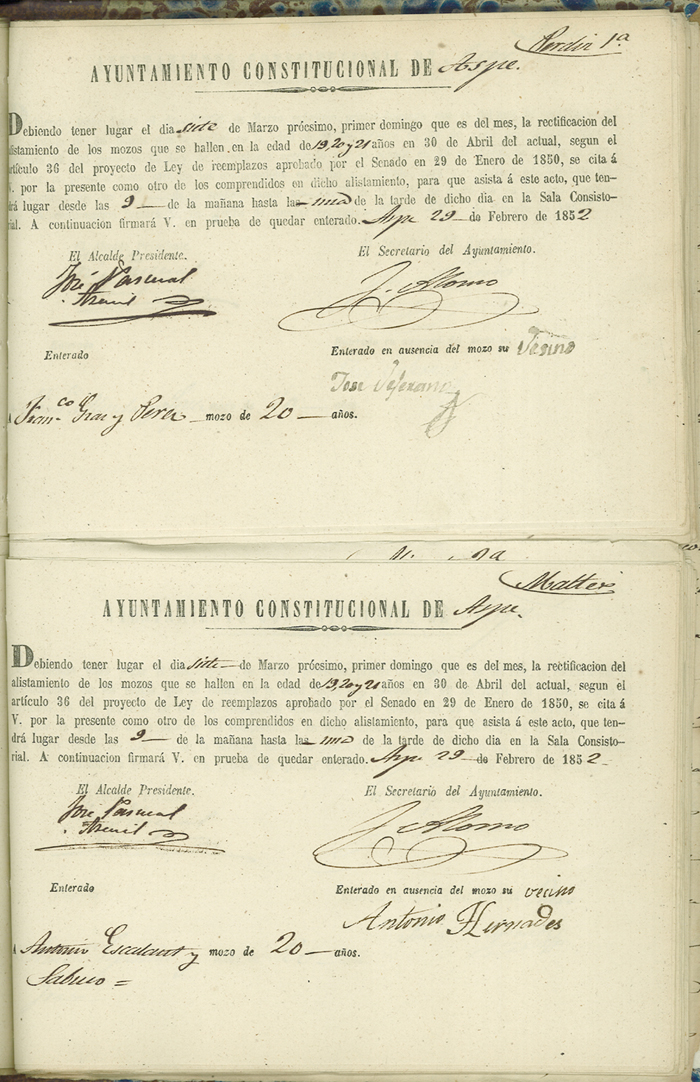 Perdiz 1ª
AYUNTAMIENTO CONSTITUCIONAL DE Aspe.
Debiendo tener lugar el dia siete de Marzo prócsimo, primer domingo que es del mes, la rectificacion del
alistamiento de los mozos que se hallen en la edad de 19, 20 y 21 años en 30 de Abril del actual, segun el
artículo 36 del proyecto de Ley de reemplazos aprobado por el Senado en 29 de Enero de 1850, se cita á
V. por la presente como otro de los comprendidos en dicho alistamiento, para que asista á este acto, que ten-
drá lugar desde las 9 — de la mañana hasta las — una de la tarde de dicho dia en la Sala Consisto-
rial. A continuacion firmará V. en prueba de quedar enterado. Aspe 29 — de Febrero de 1852
El Alcalde Presidente. El Secretario del Ayuntamiento.
José Pascual J. Alonso
Enterado Enterado en ausencia del mozo su Vecino
Jose
A Fran.co y — mozo de 20 — años.
Maltes
AYUNTAMIENTO CONSTITUCIONAL DE Aspe.
Debiendo tener lugar el dia siete — de Marzo prócsimo, primer domingo que es del mes, la rectificacion del
alistamiento de los mozos que se hallen en la edad de 19, 20 y 21 años en 30 de Abril del actual, segun el
artículo 36 del proyecto de Ley de reemplazos aprobado por el Senado en 29 de Enero de 1850, se cita á
V. por la presente como otro de los comprendidos en dicho alistamiento, para que asista á este acto, que ten-
drá lugar desde las 9 — de la mañana hasta las — una de la tarde de dicho dia en la Sala Consisto-
rial. A continuacion firmará V. en prueba de quedar enterado. Aspe 29 — de Febrero de 1852
El Alcalde Presidente. El Secretario del Ayuntamiento.
José Pascual J. Alonso
Enterado Enterado en ausencia del mozo su vecino
Antonio Hernades
A Antonio Escalant y mozo de 20 — años.
Sabuco =